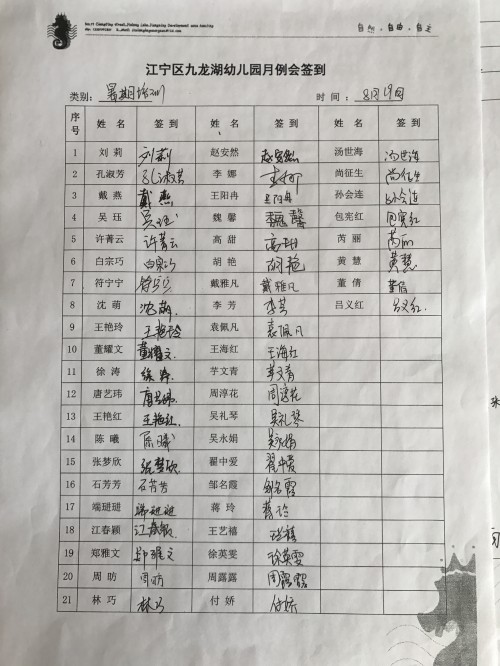 自然 · 自由 · 自主
江宁区九龙湖幼儿园月例会签到
类别: 暑期培训 时间: 8月19日
序号 姓名 签到 姓名 签到 姓名 签到
1 刘莉 刘莉 赵安然 赵安然 汤世海 汤世海
2 孔淑芳 孔淑芳 李娜 李娜 尚征生 尚征生
3 戴燕 戴燕 王阳冉 王阳冉 孙会连 孙会连
4 吴珏 吴珏 魏馨 魏馨 包宛红
5 许菁云 许菁云 高甜 高甜 芮丽 芮丽
6 白宗巧 白宗巧 胡艳 胡艳 黄慧 黄慧
7 符宁宁 符宁宁 戴雅凡 戴雅凡 董倩 董倩
8 沈萌 沈萌 李芳 李芳 吕义红 吕义红
9 王艳玲 王艳玲 袁佩凡 袁佩凡
10 董耀文 董耀文 王海红 王海红
11 徐涛 徐涛 芋文青
12 唐艺玮 唐艺玮 周淳花 周淳花
13 王艳红 王艳红 吴礼琴 吴礼琴
14 陈曦 陈曦 吴永娟 吴永娟
15 张梦欣 张梦欣 翟中爱 翟中爱
16 石芳芳 石芳芳 邹名霞 邹名霞
17 端琎琎 端琎琎 蒋玲 蒋玲
18 江春颖 江春颖 王艺禧 王艺禧
19 郑雅文 郑雅文 徐英雯 徐英雯
20 周昉 周昉 周露露 周露露
21 林巧 林巧 付娇 付娇